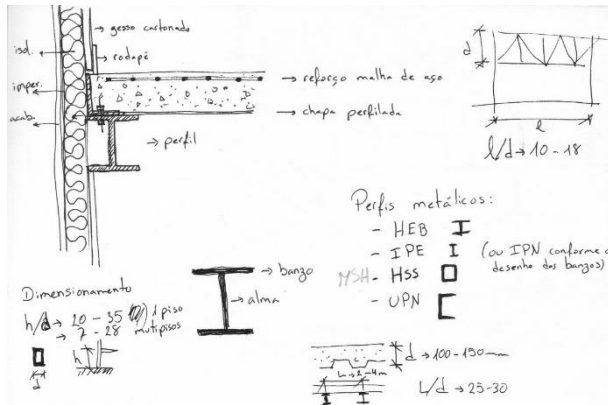 gesso cartonado
isol.
rodapé
imper.
acab.
reforço malha de aço
chapa perfilada
perfil
d
l
l/d → 10 - 18
Perfis metálicos:
- HEB
- IPE
(ou IPN conforme o desenho dos banzos)
MSH - HSS
- UPN
banzo
alma
Dimensionamento
h/d → 20 - 35 1 piso
→ 7 - 28 mutipisos
h
d
d → 100 - 150 mm
L → 2 - 4 m
L/d → 25 - 30